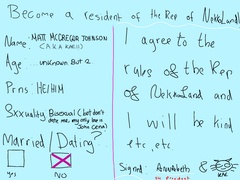 Become a resident of the Rep of Nekoland
Name: MATT MCGREGOR JOHNSON
(A.K.A. KARII)
Age .. unknown But 2
Prns: HE/HIM
Sxxuality: Bisexual ( bet don't
date me, my only bae is
John Cena)
Married/Dating?..
YES
NO
I agree to the
rules of the Rep
of Nekoland and
I will be kind
etc, etc
Signed: Annabeth &